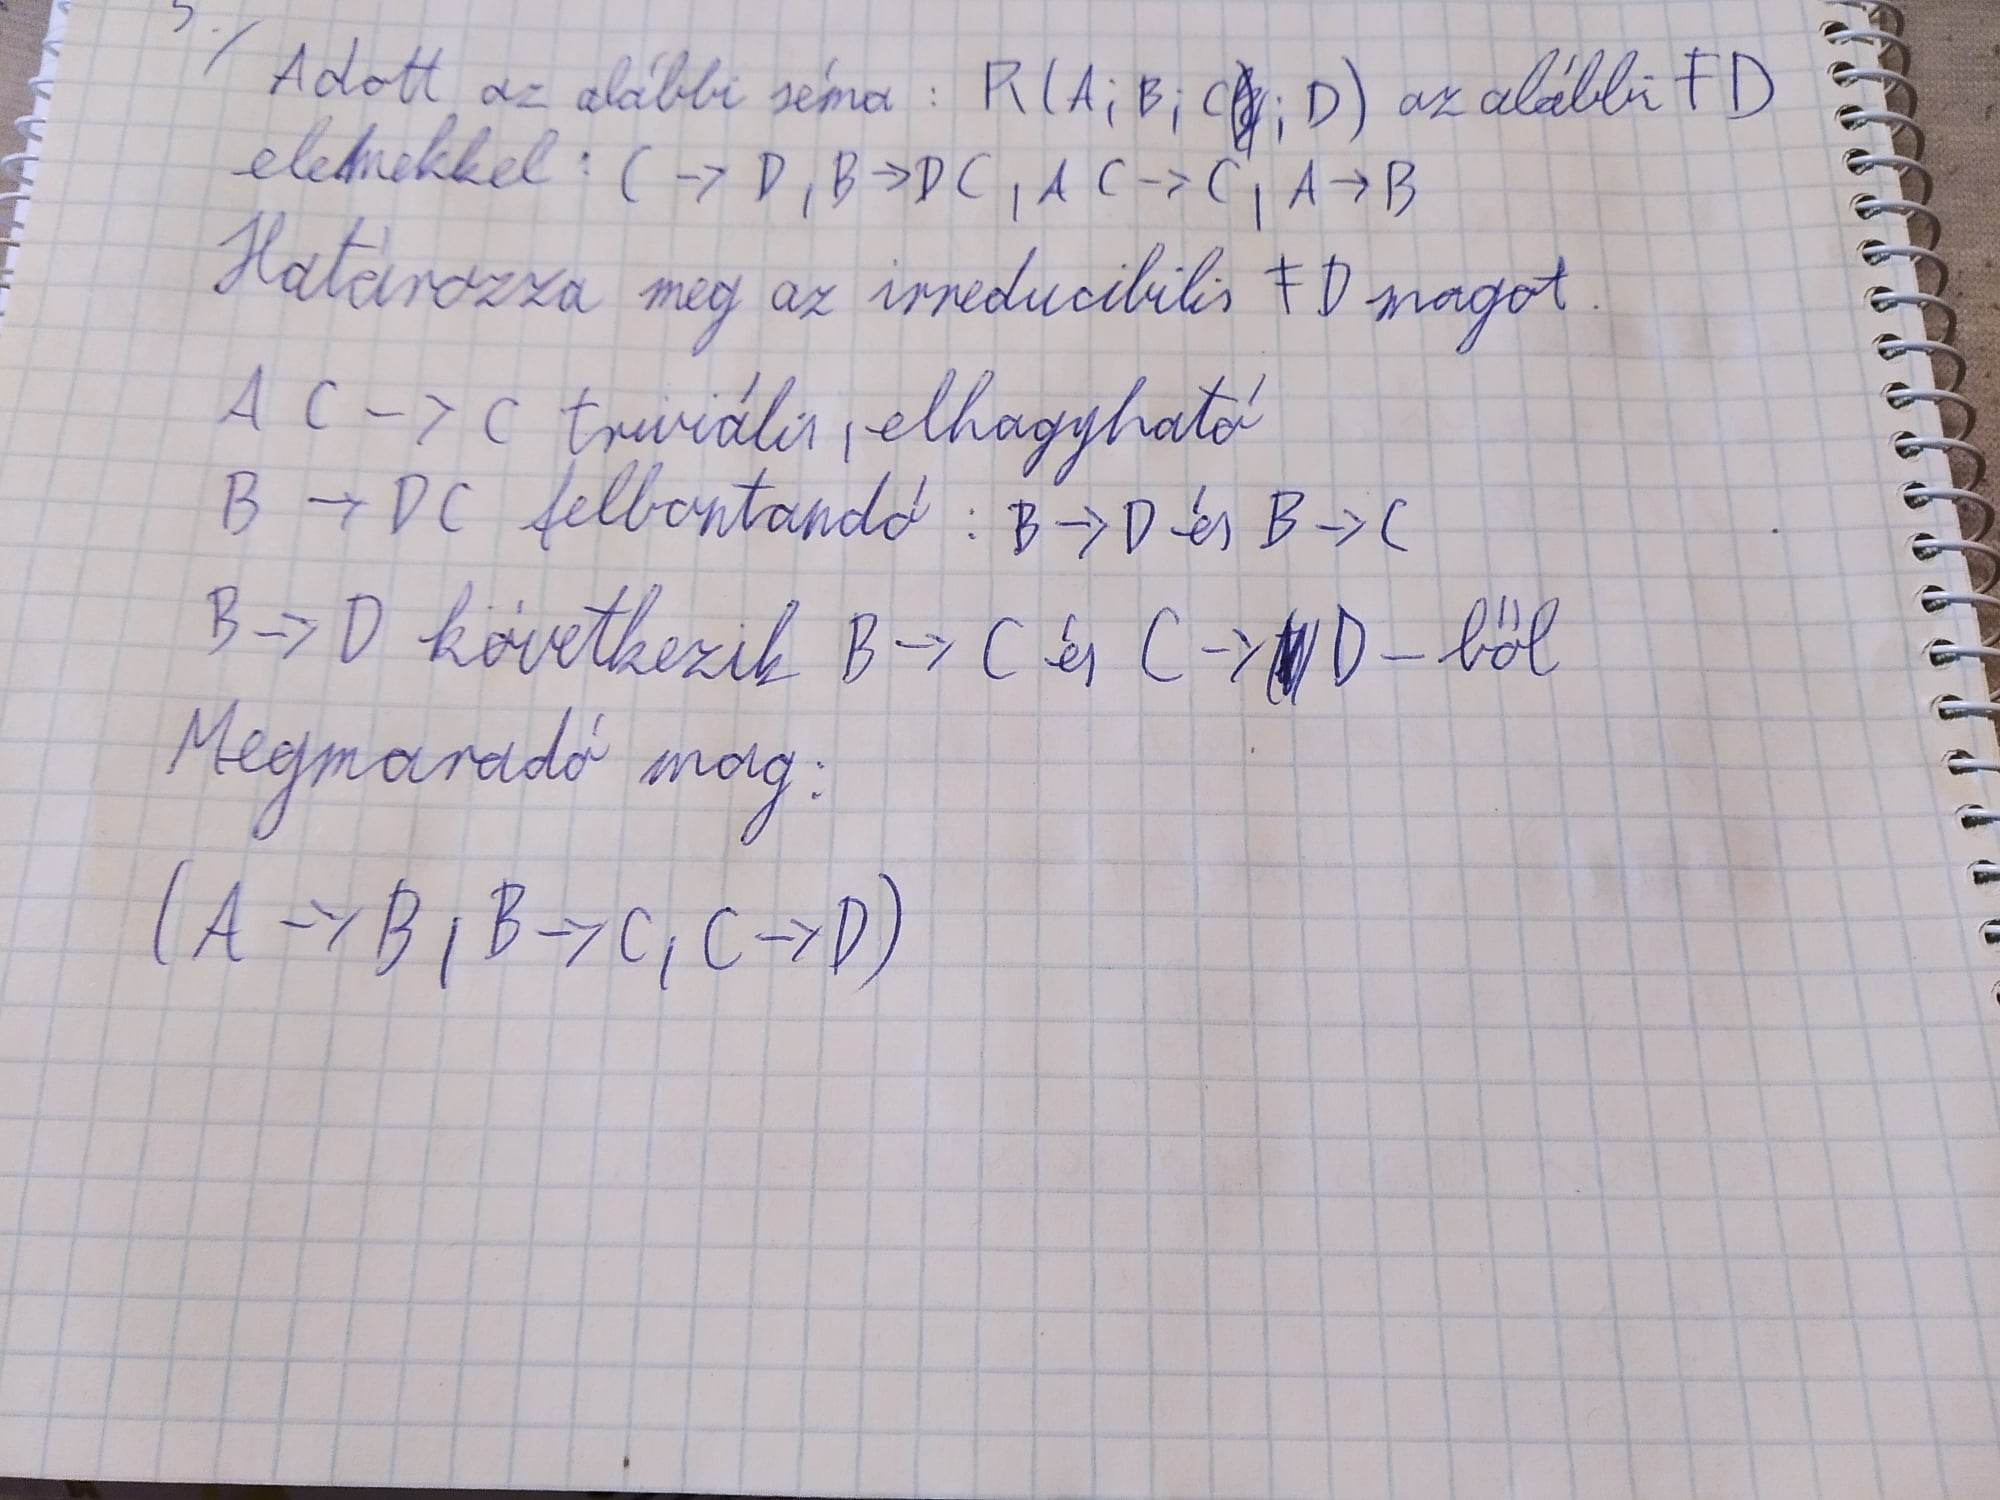 5./
Adott az alábbi séma: R(A; B; C; D) az alábbi FD
elemekkel: C -> D, B->DC, AC->C, A->B
Határozza meg az irreducibilis FD magot.
AC -> C triviális, elhagyható
B -> DC felbontandó: B->D és B->C
B->D következik B->C és C->D-ből
Megmaradó mag:
(A -> B, B->C, C->D)